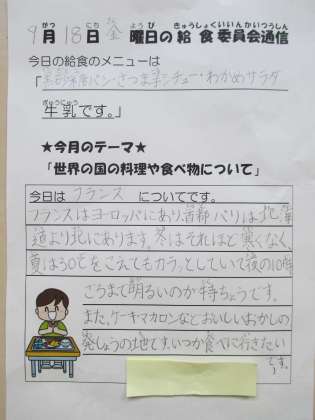 9月18日金曜日の給食委員会通信
今日の給食のメニューは
「黒砂糖パン・さつま芋シチュー・わかめサラダ
牛乳です。」
★今月のテーマ★
「世界の国の料理や食べ物について」
今日はフランスについてです。
フランスはヨーロッパにあり首都パリは北海
道より北にあります。冬はそれほど寒くなく、
夏は30℃をこえてもカラッとしていて夜の10時
ごろまで明るいのが特ちょうです。
また、ケーキマカロンなどおいしいおかしの
発しょうの地です。いつか食べに行きたい
です。